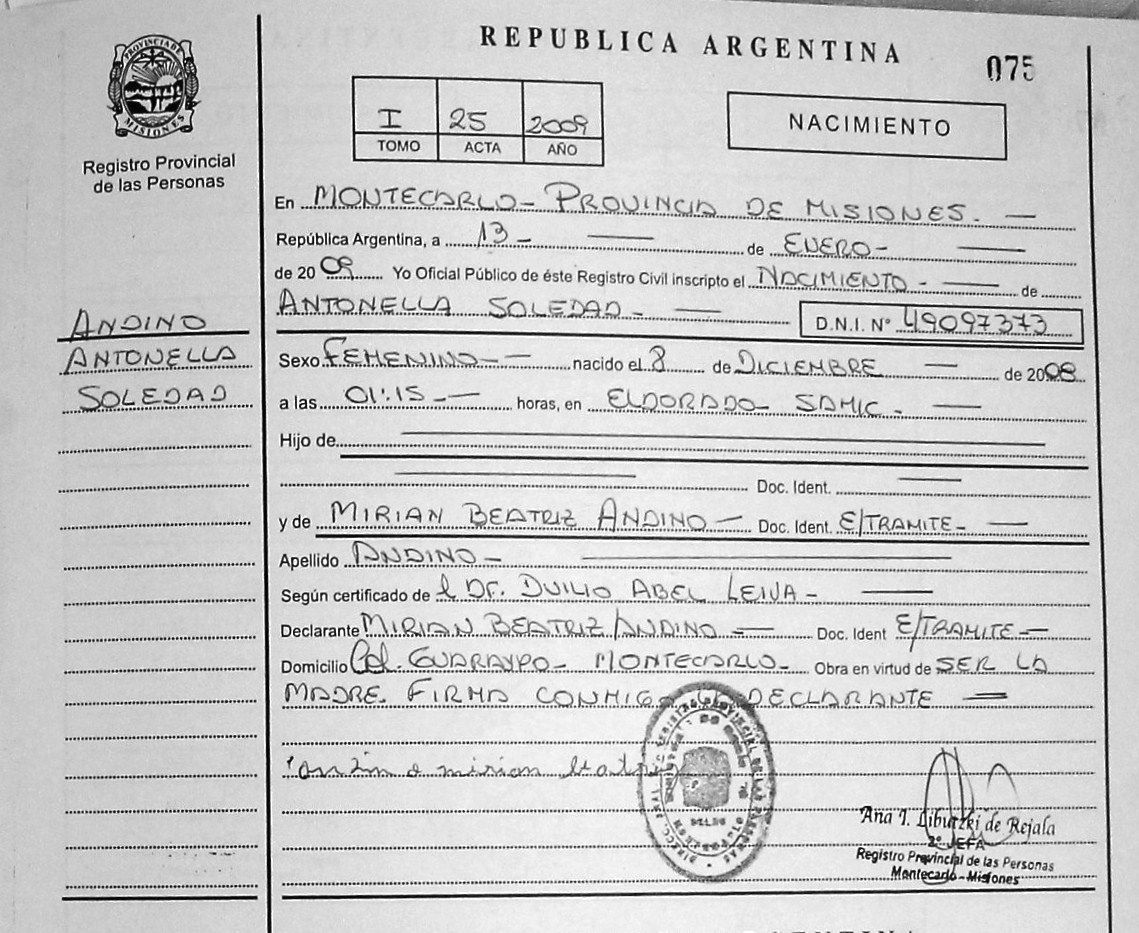 REPUBLICA ARGENTINA
075
PROVINCIA DE MISIONES
Registro Provincial
de las Personas
I 25 2009
TOMO ACTA AÑO
NACIMIENTO
En MONTECARLO - PROVINCIA DE MISIONES. —
República Argentina, a 13 - — de ENERO - —
de 2009 Yo Oficial Público de éste Registro Civil inscripto el NACIMIENTO - — de
ANTONELLA SOLEDAD - —
D.N.I. Nº 49097373
ANDINO
ANTONELLA
SOLEDAD
Sexo FEMENINO - — nacido el 8 de DICIEMBRE — de 2008
a las 01:15 - — horas, en ELDORADO - SAMIC - —
Hijo de —
— Doc. Ident. —
y de MIRIAN BEATRIZ ANDINO — Doc. Ident. E/TRAMITE - —
Apellido ANDINO - —
Según certificado de l DR. DUILIO ABEL LEIVA - —
Declarante MIRIAN BEATRIZ ANDINO — Doc. Ident E/TRAMITE —
Domicilio Col. GUARAYPO - MONTECARLO - Obra en virtud de SER LA
MADRE. FIRMA CONMIGO LA DECLARANTE —
mirian
Ana I. Liburzki de Rejala
2º JEFA
Registro Provincial de las Personas
Montecarlo - Misiones